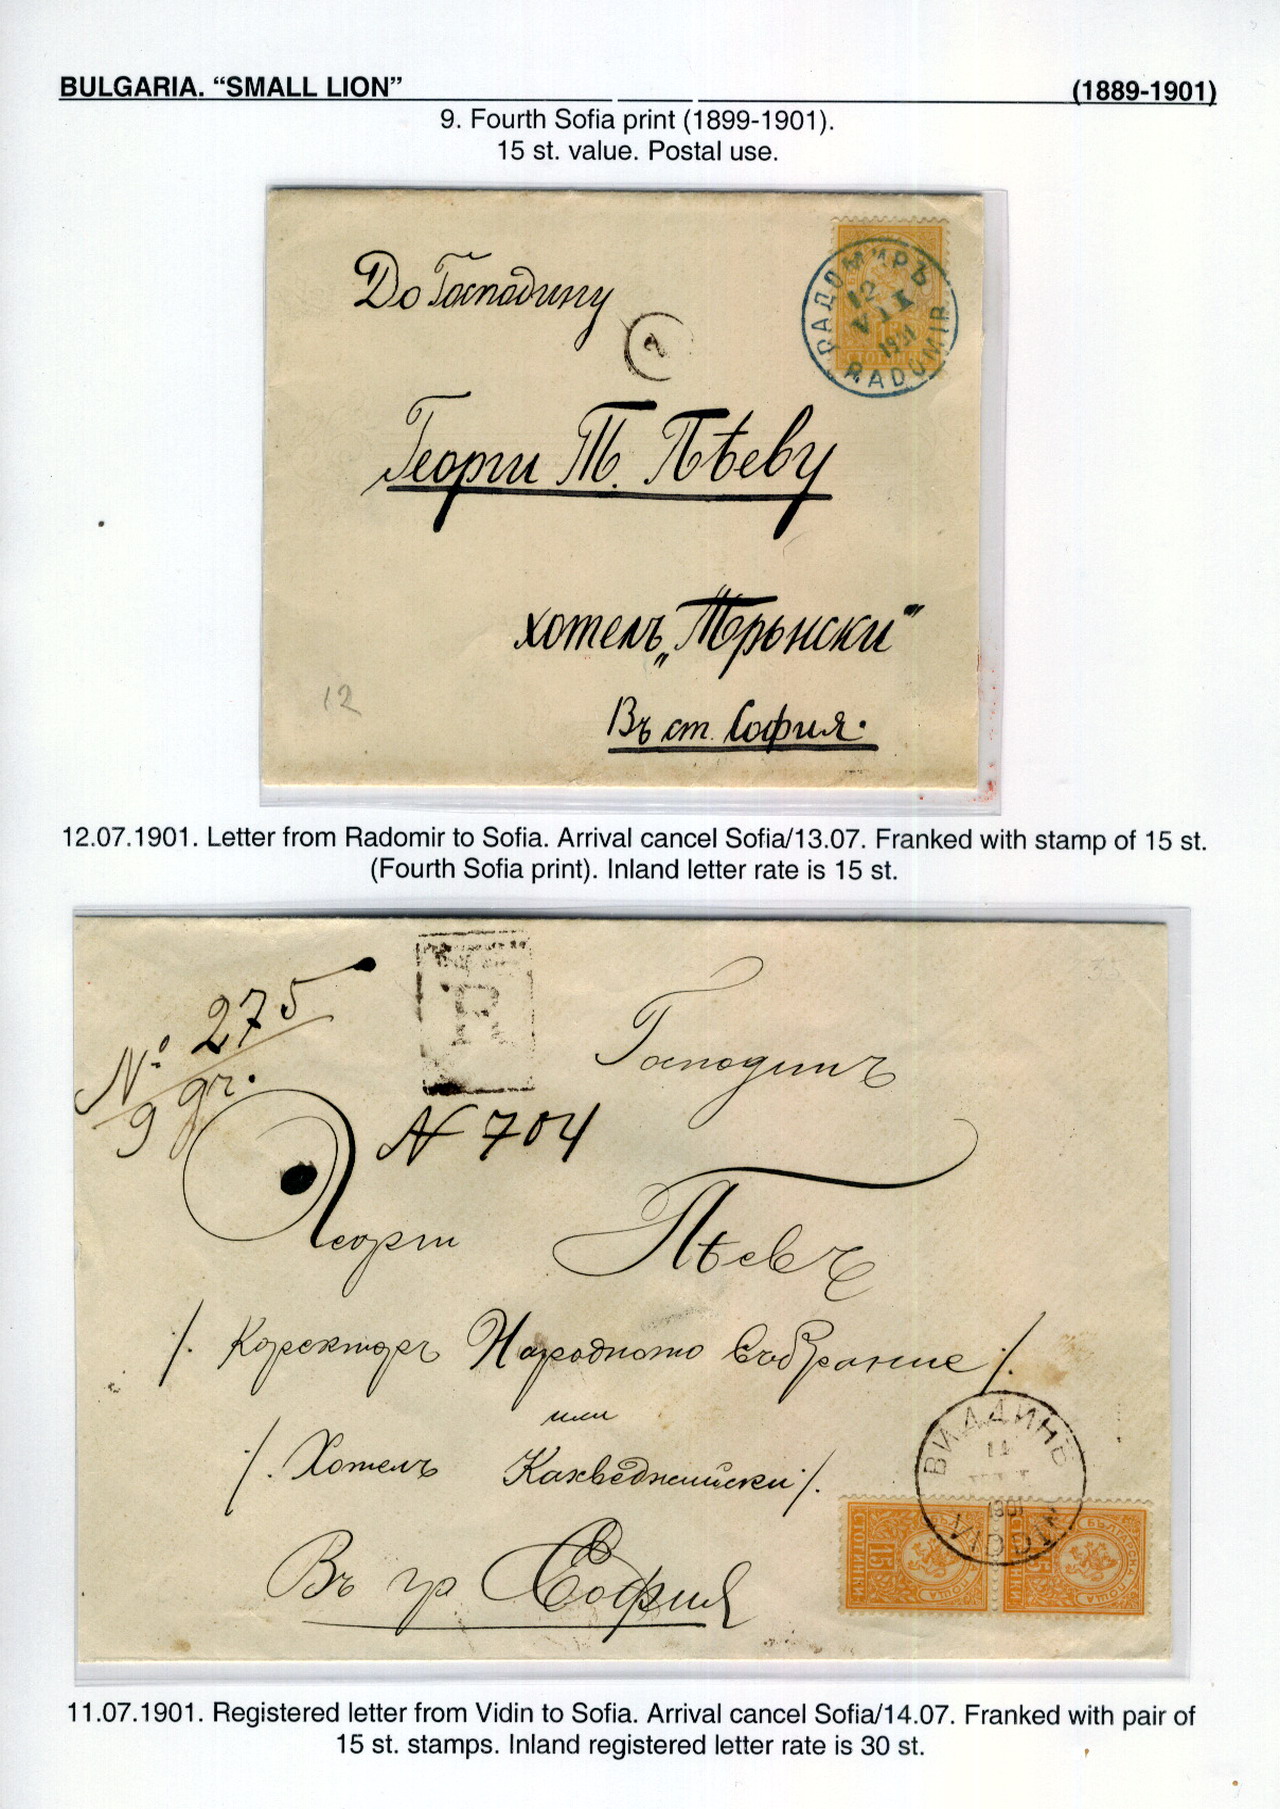 BULGARIA. “SMALL LION” (1889-1901)
9. Fourth Sofia print (1899-1901).
15 st. value. Postal use.
До Господину
РАДОМИРЪ
12
VII
1901
RADOMIR
СТОТИНКИ
Георги Т. Пѣеву
хотелъ „Трънски“
12
Въ ст. София.
12.07.1901. Letter from Radomir to Sofia. Arrival cancel Sofia/13.07. Franked with stamp of 15 st.
(Fourth Sofia print). Inland letter rate is 15 st.
R
№ 275
9 гр.
N 704
Господинъ
Георги Пѣевъ
/. Коректоръ Народното Събрание /.
или
/. Хотелъ Кахведжийски /.
Въ гр София
ВИДДИНЪ
11
1901
VIDDIN
СТОТИНКИ 15 БЪЛГАРСКА ПОЩА
СТОТИНКИ 15 БЪЛГАРСКА ПОЩА
11.07.1901. Registered letter from Vidin to Sofia. Arrival cancel Sofia/14.07. Franked with pair of
15 st. stamps. Inland registered letter rate is 30 st.